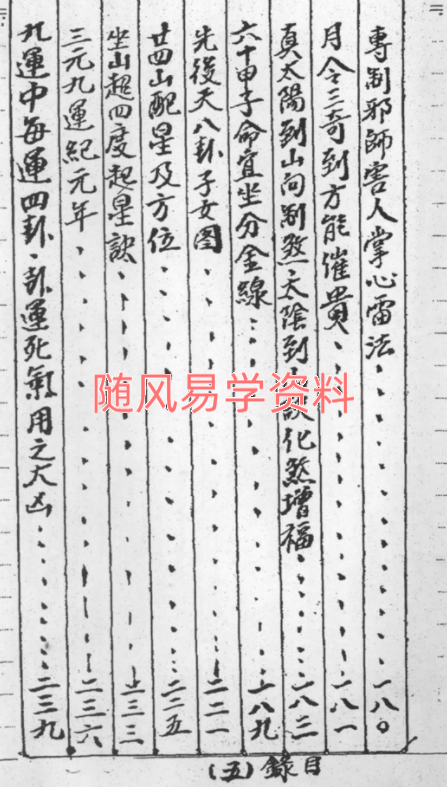 專制邪師害人掌心雷法 一八〇
月令三奇到方能催貴 一八一
真太陽到山向制煞太陰到 化煞增福 一八二
六十甲子命宜坐分金線 一八九
先後天八卦子女圖 二二一
廿四山配星及方位 二二五
坐山起四度起星訣 二三三
三元九運紀元年 二三六
九運中每運四卦、卦運死氣用之大凶 二三九
目錄(五)
随风易学资料